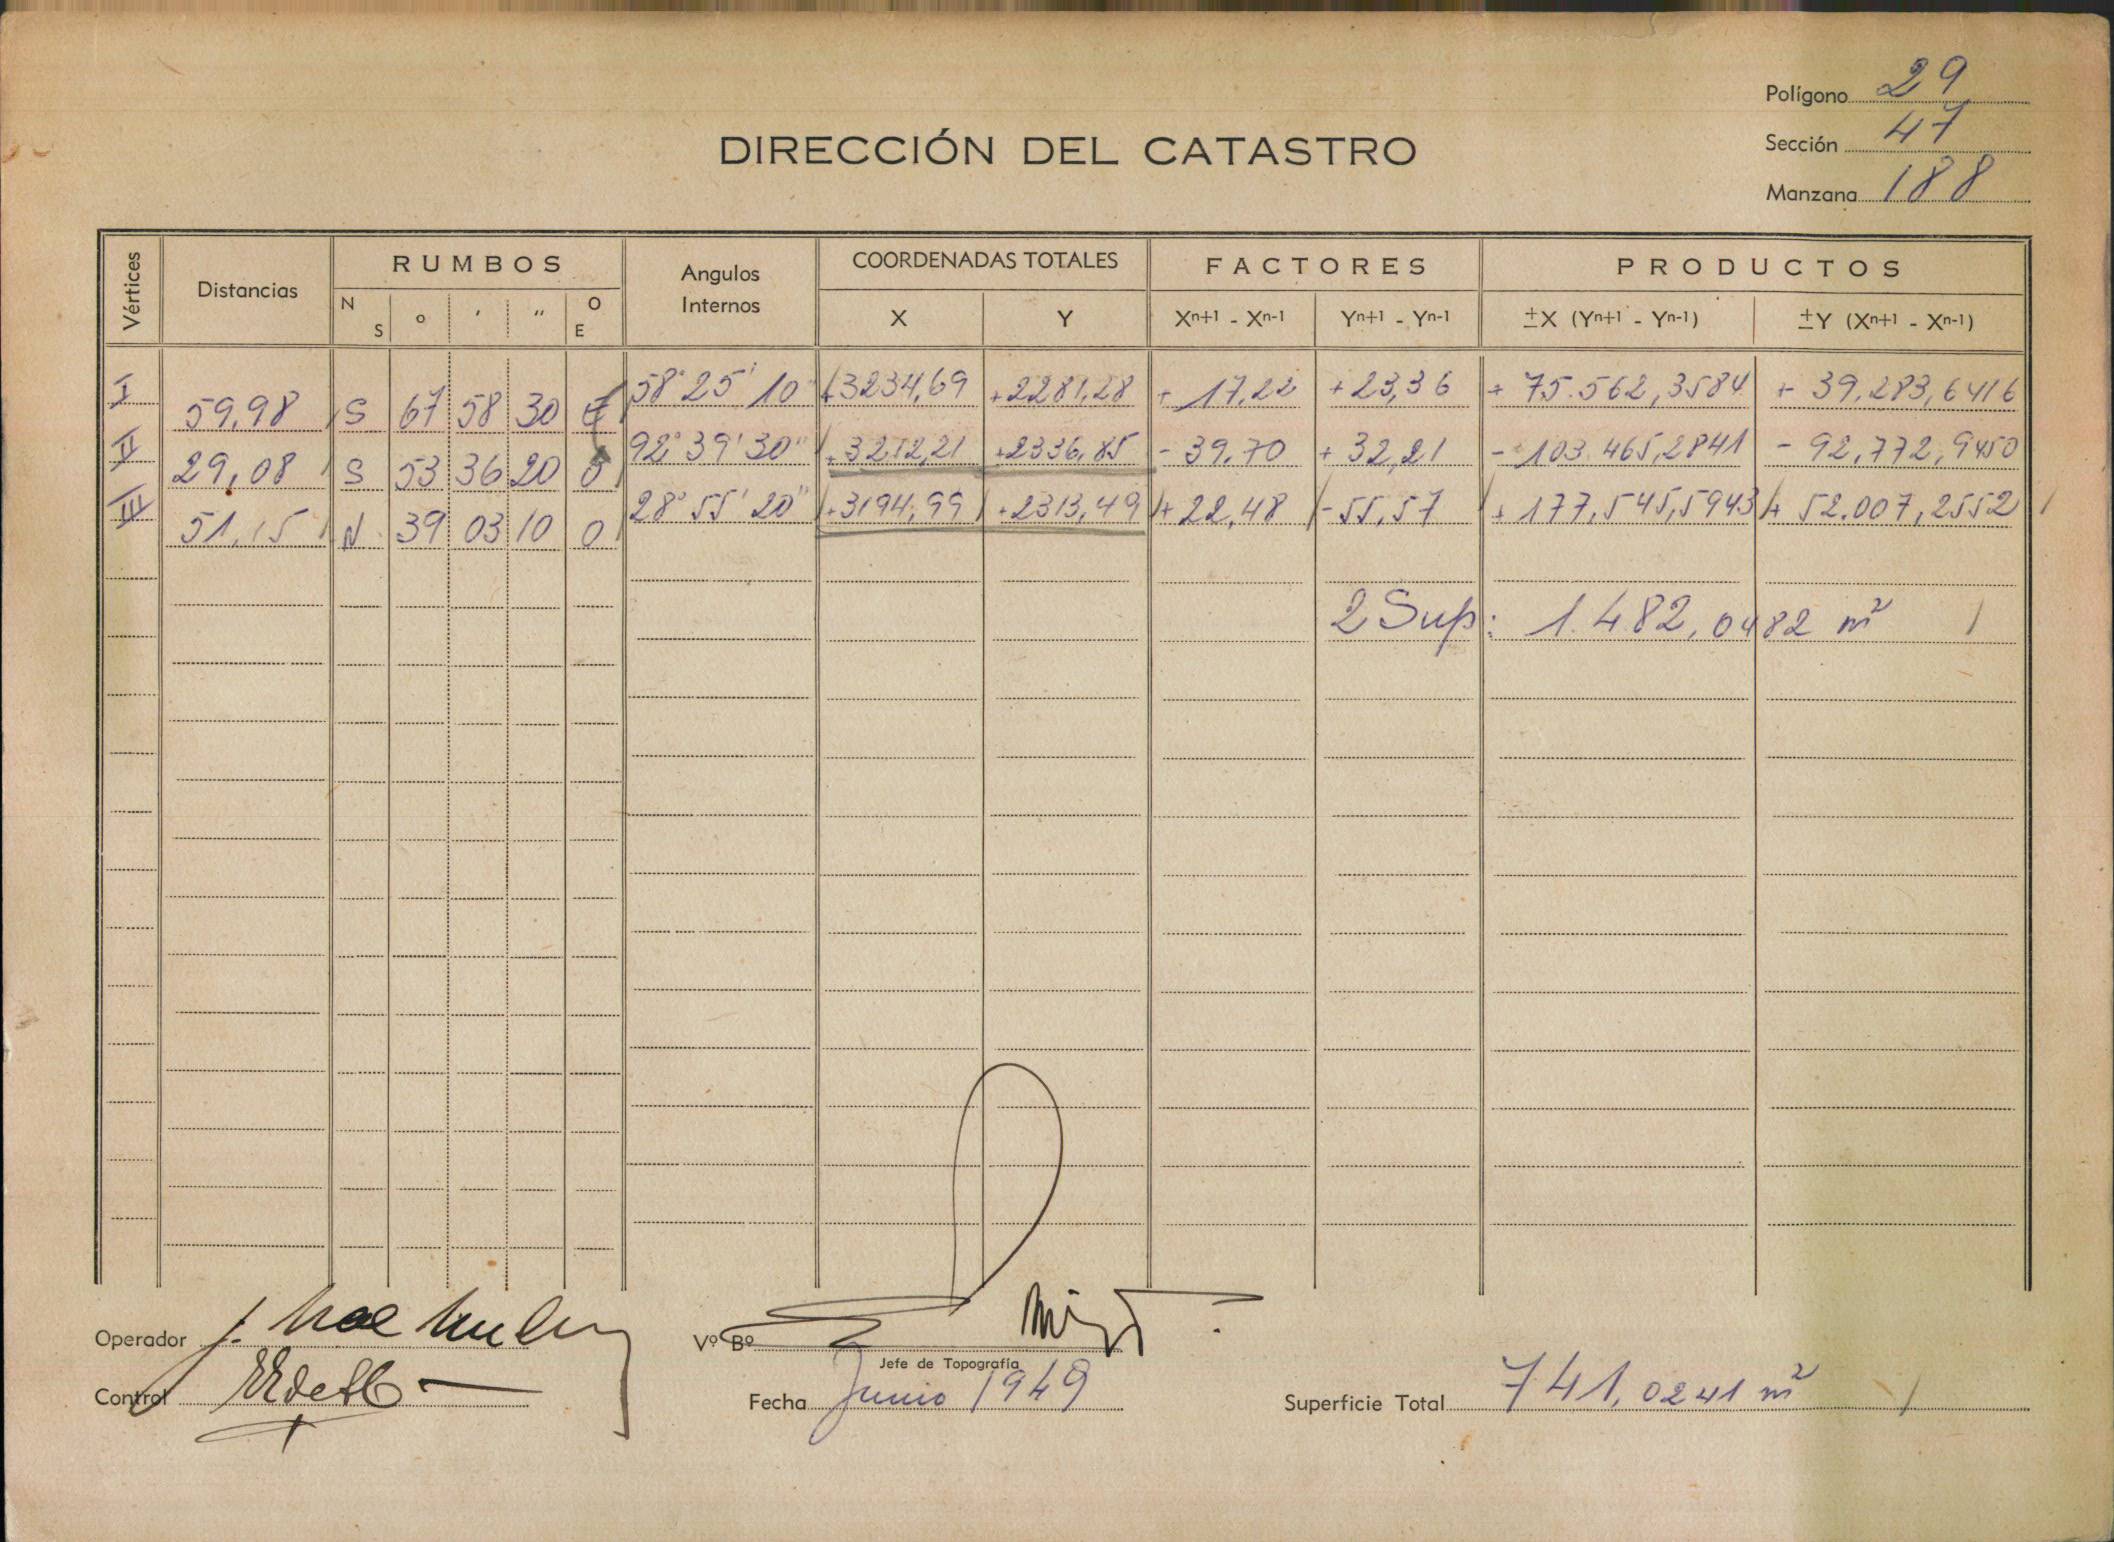 Polígono 29
Sección 47
Manzana 188
DIRECCIÓN DEL CATASTRO
Vértices Distancias RUMBOS Angulos Internos COORDENADAS TOTALES FACTORES PRODUCTOS
N S o ′ ″ O E X Y Xn+1 - Xn-1 Yn+1 - Yn-1 ±X (Yn+1 - Yn-1) ±Y (Xn+1 - Xn-1)
I 58° 25' 10 +3234,69 +2281,28 + 17,22 +23,36 + 75.562,3584 + 39.283,6416
59,98 S 67 58 30 E
II 92° 39' 30" +3212,21 +2336,85 - 39,70 + 32,21 - 103.465,2841 - 92,772,9450
29,08 S 53 36 20 O
III 28° 55' 20" +3194,99 +2313,49 + 22,48 -55,57 + 177,545,5943 + 52.007,2552
51,15 N 39 03 10 O
2 Sup: 1.482,0482 m²
Operador
Vº Bº
Jefe de Topografía
Control
Fecha Junio 1949
Superficie Total 741,0241 m²